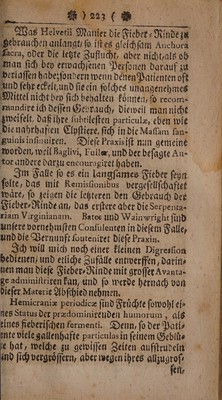 ) 223 (
Was Helvetii Manier die Fieber-Rinde zu
gebrauchen anlangt, so ist es gleichsam Anchora
sacra, oder die letzte Zuflucht, aber nicht, als ob
man sich bey erwachsenen Personen darauf zu
verlassen habe; sondern wenn denen Patienten oft
und sehr eckelt, und sie ein solches unangenehmes
Mittel nicht bey sich behalten können, so recom-
mandire ich dessen Gebrauch, dieweil man nicht
zweifelt, daß ihre subtilesten particulæ, eben wie
die nahrhaften Clystiere, sich in die Massam san-
guinis insinuiren. Diese Praxis ist nun gemeine
worden, weil Baglivi, Fuller, und der besagte Au-
tor andere darzu encouragiret haben.
Im Falle so es ein langsames Fieber seyn
solte, das mit Remissionibus vergesellschaftet
wäre, so zeigen die letzteren den Gebrauch der
Fieber-Rinde an, das erstere aber die Serpenta-
riam Virginianam. Bates und Wainwright sind
unsere vornehmsten Consulenten in diesem Falle,
und die Vernunft souteniret diese Praxin.
Ich will mich noch einer kleinen Digression
bedienen, und etliche Zufälle entwerffen, darin-
nen man diese Fieber-Rinde mit grosser Avanta-
ge administriren kan, und so werde hernach von
dieser Materie Abschied nehmen.
Hemicraniæ periodicæ sind Früchte sowohl ei-
nes Status der prædominirenden humorum, als
eines fieberischen fermenti. Denn, so der Pati-
ente viele gallenhafte particulas in seinem Geblü-
te hat, welche zu gewissen Zeiten aufstrudeln
und sich vergrössern, aber wegen ihres allzugros-
sen,